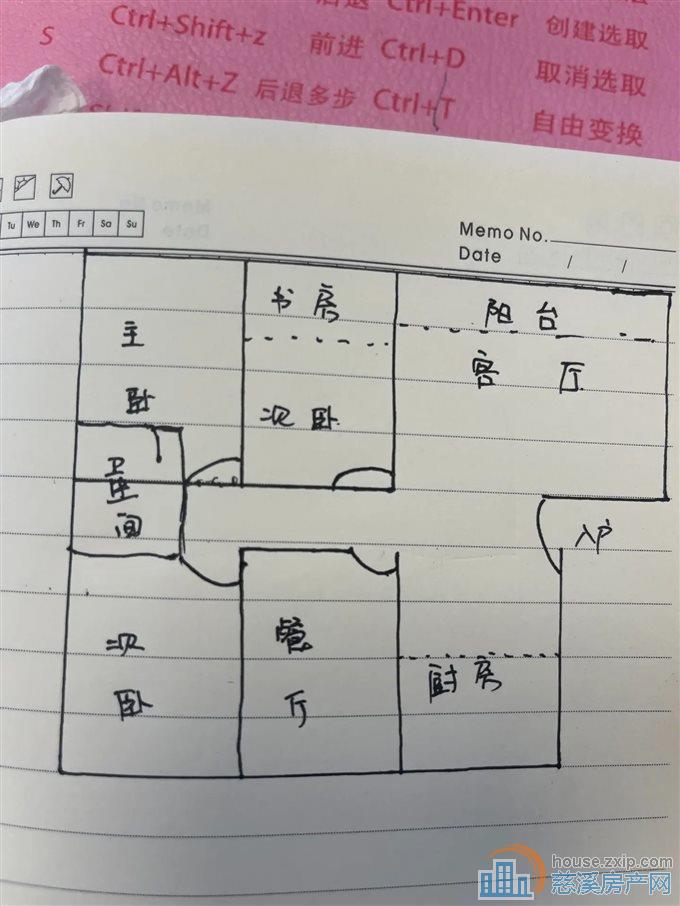 后退 Ctrl+Enter 创建选取
S Ctrl+Shift+z 前进 Ctrl+D 取消选取
Ctrl+Alt+Z 后退多步 Ctrl+T 自由变换
Tu We Th Fr Sa Su
Memo No.
Date / /
书房
阳台
主卧
客厅
次卧
卫生间
入户
次卧
餐厅
厨房
house.zxip.com
慈溪房产网